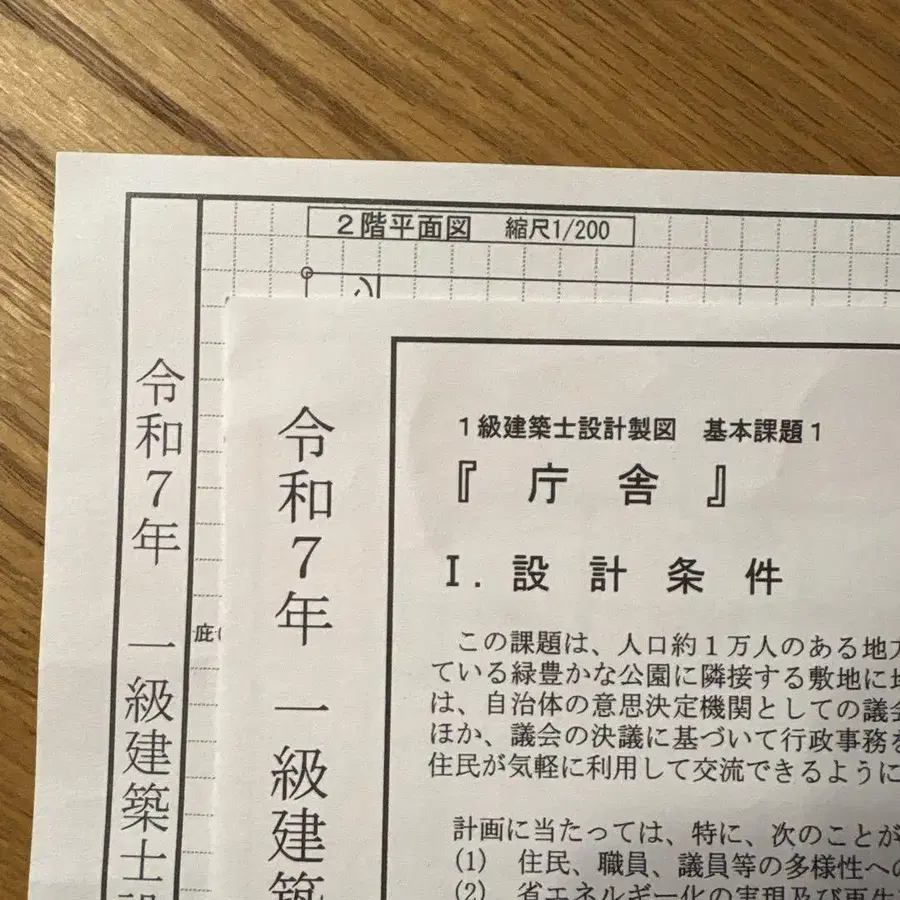 2階平面図 縮尺1/200
令和7年 一級建築士設
庇
令和7年 一級建築
1級建築士設計製図 基本課題1
『庁舎』
I.設計条件
この課題は、人口約1万人のある地方
ている緑豊かな公園に隣接する敷地に地
は、自治体の意思決定機関としての議会
ほか、議会の決議に基づいて行政事務を
住民が気軽に利用して交流できるように
計画に当たっては、特に、次のことが
(1) 住民、職員、議員等の多様性への
(2) 省エネルギー化の実現及び再生